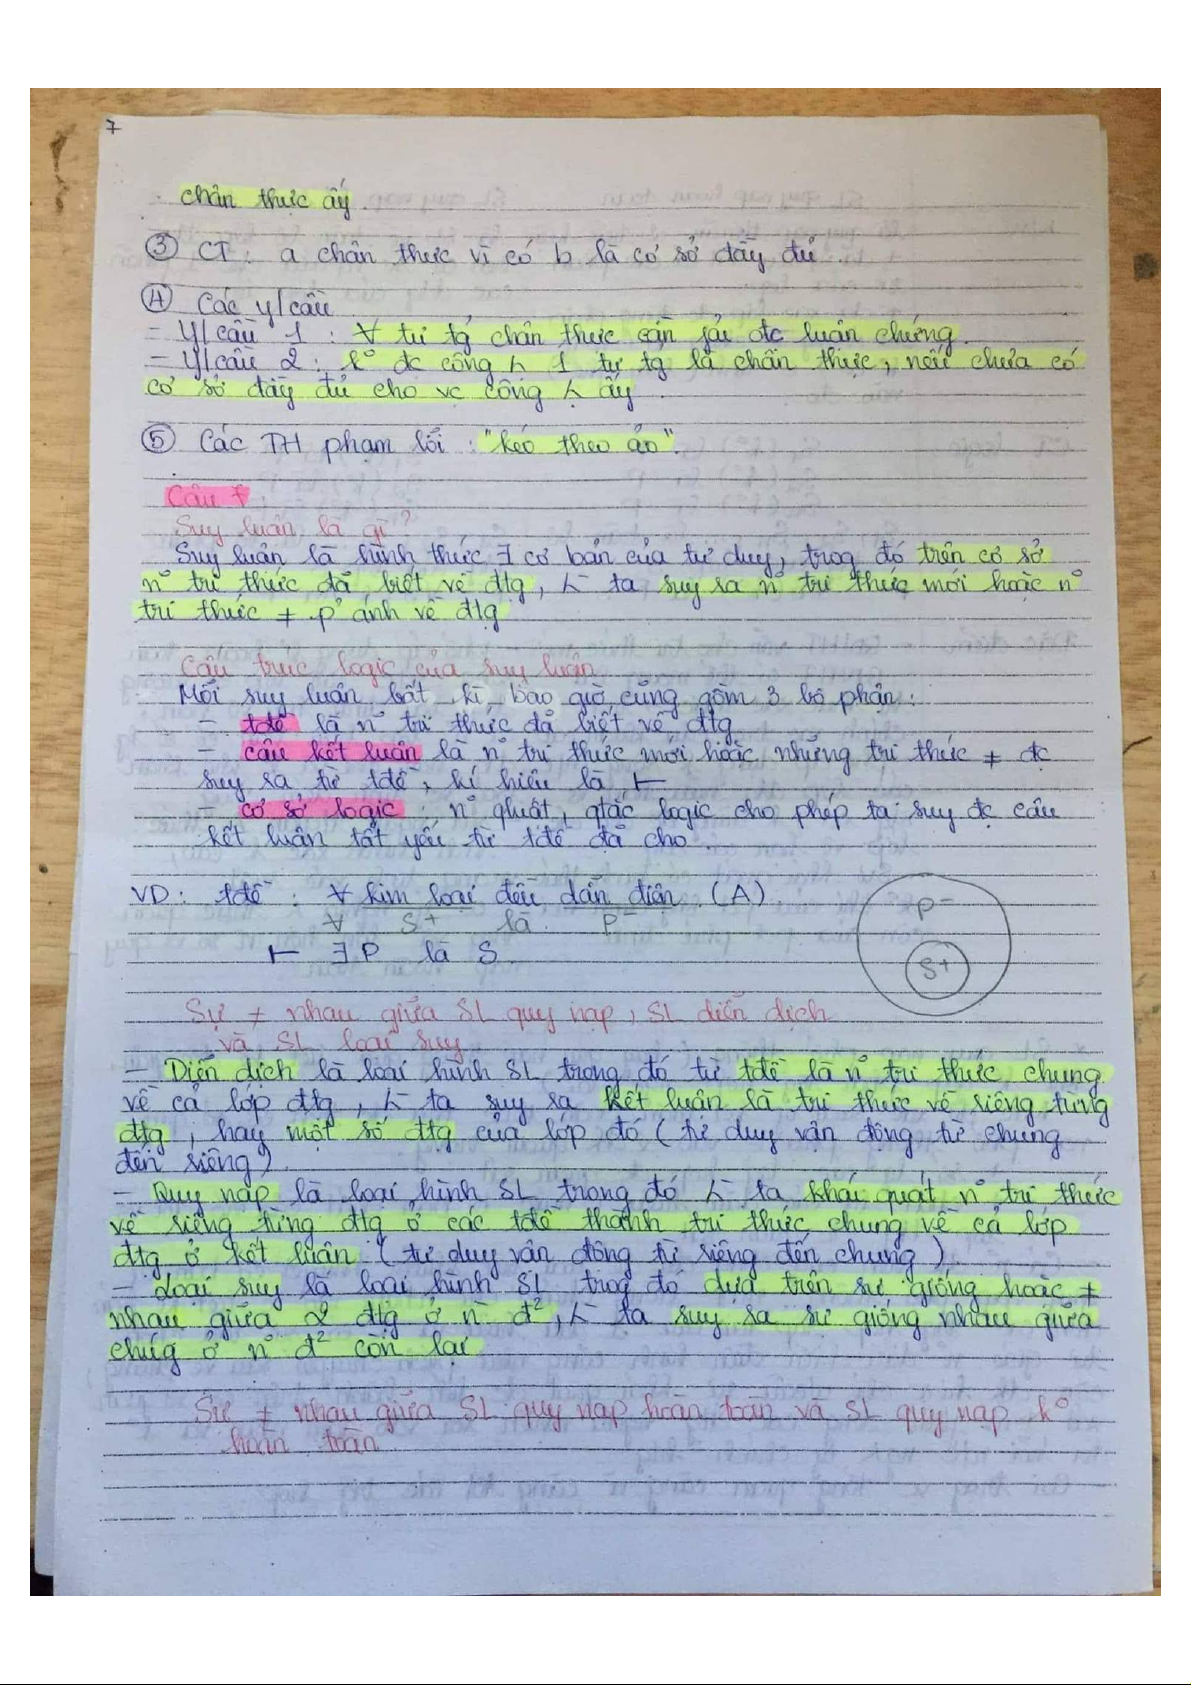 7
chân thực ấy.
③ CT : a chân thực vì có b là cơ sở đầy đủ.
④ Các y/cầu
- Y/cầu 1 : ∀ tư tg chân thực cần fải đc luận chứng.
- Y/cầu 2 : k° đc công 1 tư tg là chân thực, nếu chưa có
cơ sở đầy đủ cho vc công ấy.
⑤ Các TH phạm lỗi : "kéo theo ảo".
Câu 7
Suy luận là gì?
Suy luận là hình thức ∃ cơ bản của tư duy, trog đó trên cơ sở
n° tri thức đã biết về đtg, ta suy ra n° tri thức mới hoặc n°
tri thức ≠ p° ánh về đtg
Cấu trúc logic của suy luận
Mỗi suy luận bất kì, bao giờ cũng gồm 3 bộ phận :
- tđề là n° tri thức đã biết về đtg
- câu kết luận là n° tri thức mới hoặc những tri thức ≠ đc
suy ra từ tđề, kí hiệu là ⊢
- cơ sở logic : n° qluật, qtắc logic cho phép ta suy đc câu
kết luận tất yếu từ tđề đã cho.
VD : tđề : ∀ kim loại đều dẫn điện. (A)
∀ S+ là P-
⊢ ∃ P là S.
P-
S+
Sự ≠ nhau giữa SL quy nạp, SL diễn dịch
và SL loại suy
- Diễn dịch là loại hình SL trong đó từ tđề là n° tri thức chung
về cả lớp đtg, ta suy ra kết luận là tri thức về riêng từng
đtg, hay một số đtg của lớp đó (tư duy vận động từ chung
đến riêng)
- Quy nạp là loại hình SL trong đó ta khái quát n° tri thức
về riêng từng đtg ở các tđề thành tri thức chung về cả lớp
đtg ở kết luận (tư duy vận động từ riêng đến chung)
- Loại suy là loại hình SL trog đó dựa trên sự giống hoặc ≠
nhau giữa 2 đtg ở n° đ², ta suy ra sự giống nhau giữa
chúg ở n° đ² còn lại
Sự ≠ nhau giữa SL quy nạp hoàn toàn và SL quy nạp k°
hoàn toàn